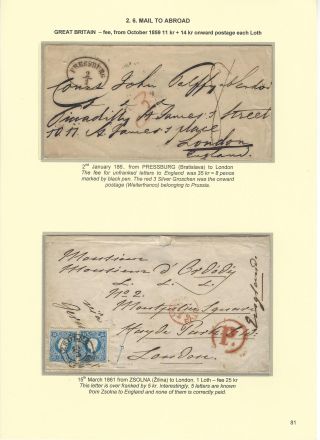 2. 6. MAIL TO ABROAD
GREAT BRITAIN – fee, from October 1859 11 kr + 14 kr onward postage each Loth
PRESSBURG
2/1
Count John Palffy
Piccadilly St James's Street
St James's place
London
England.
2nd January 186. from PRESSBURG (Bratislava) to London
The fee for unfranked letters to England was 35 kr = 8 pence
marked by black pen. The red 3 Silver Groschen was the onward
postage (Weiterfranco) belonging to Prussia.
Monsieur
Monsieur d'
No 2.
Montpelier Square
Hyde Park
London.
England.
P.
15th March 1861 from ZSOLNA (Žilina) to London. 1 Loth – fee 25 kr
This letter is over franked by 5 kr. Interestingly, 5 letters are known
from Zsolna to England and none of them is correctly paid.
81